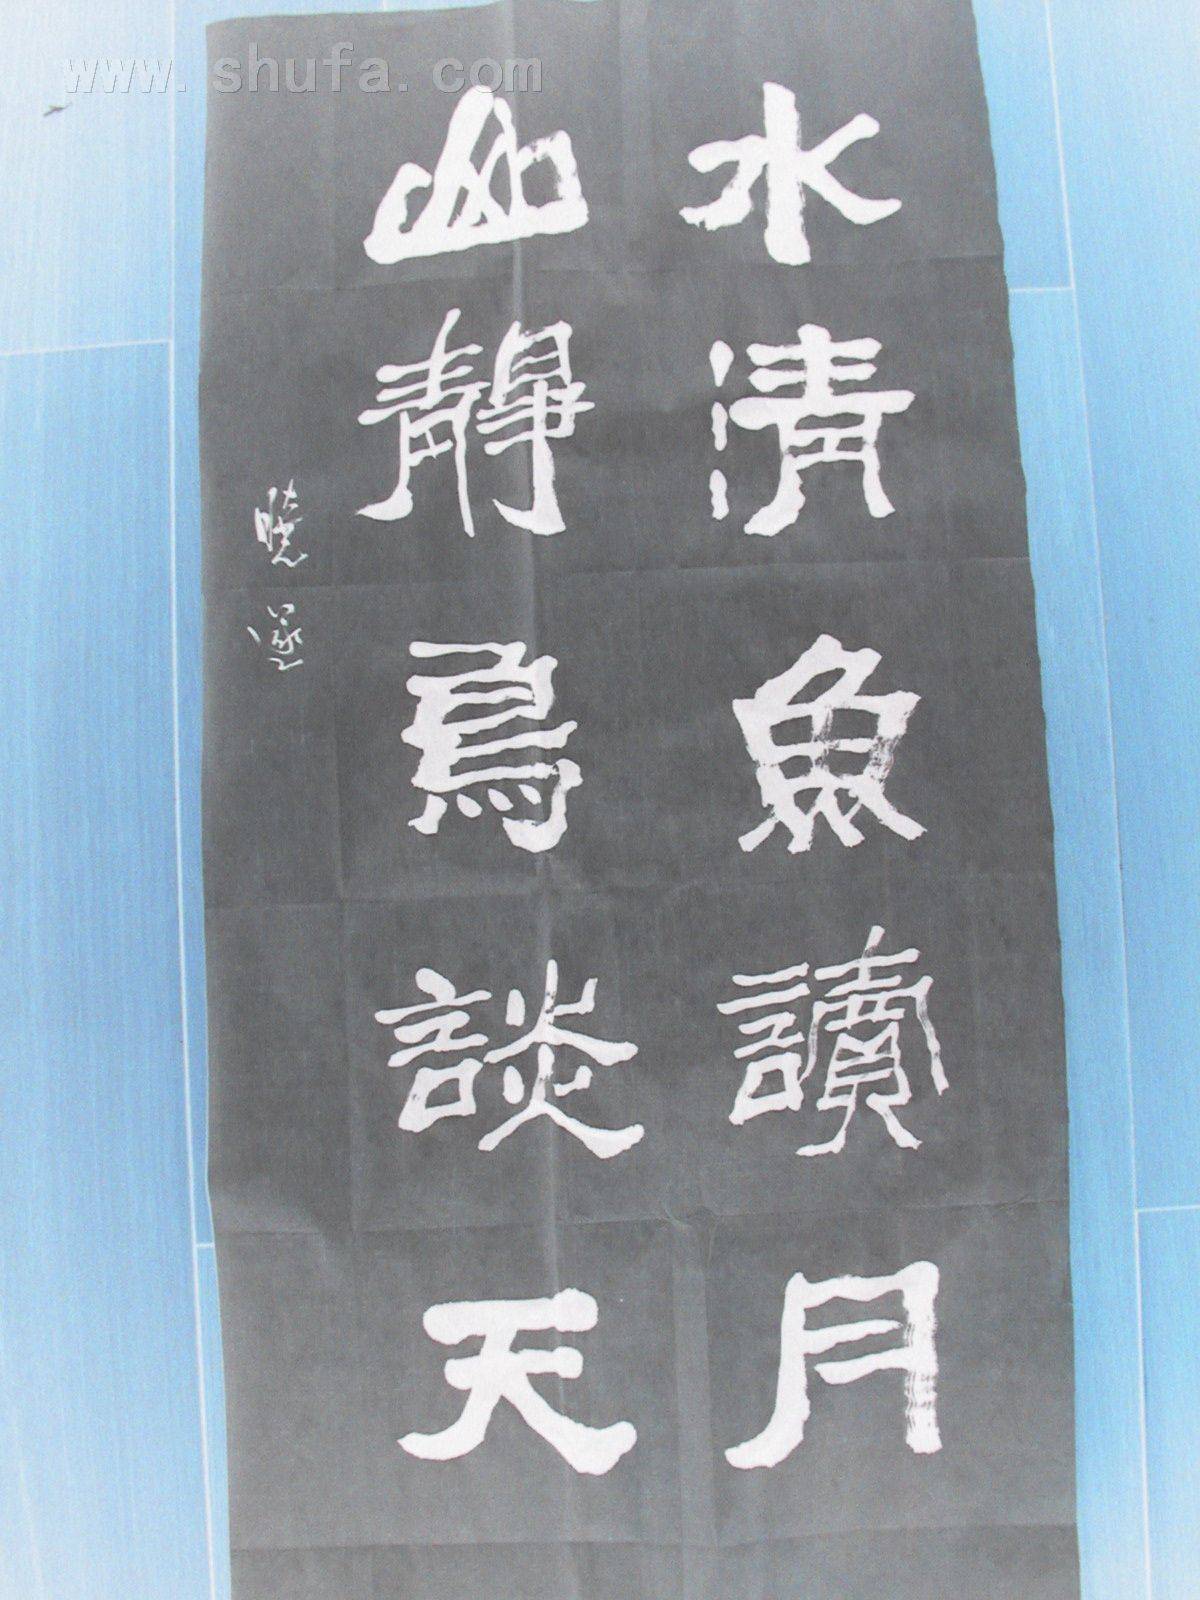 www.shufa.com
水清魚讀月
山靜鳥談天